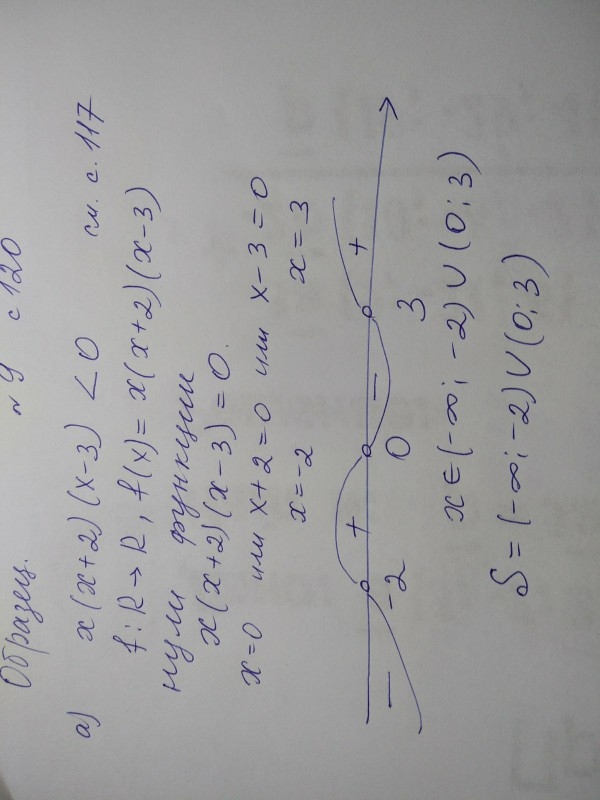 Образец. №9 с 120
а) x(x+2)(x-3) <0 см. с. 117
f: R→R, f(x)= x(x+2)(x-3)
нули функции
x(x+2)(x-3)=0.
x=0 или x+2=0 или x-3=0
x=-2 x=3
- + - +
-2 0 3
x∈(-∞; -2)∪(0; 3)
S=(-∞; -2)∪(0; 3)